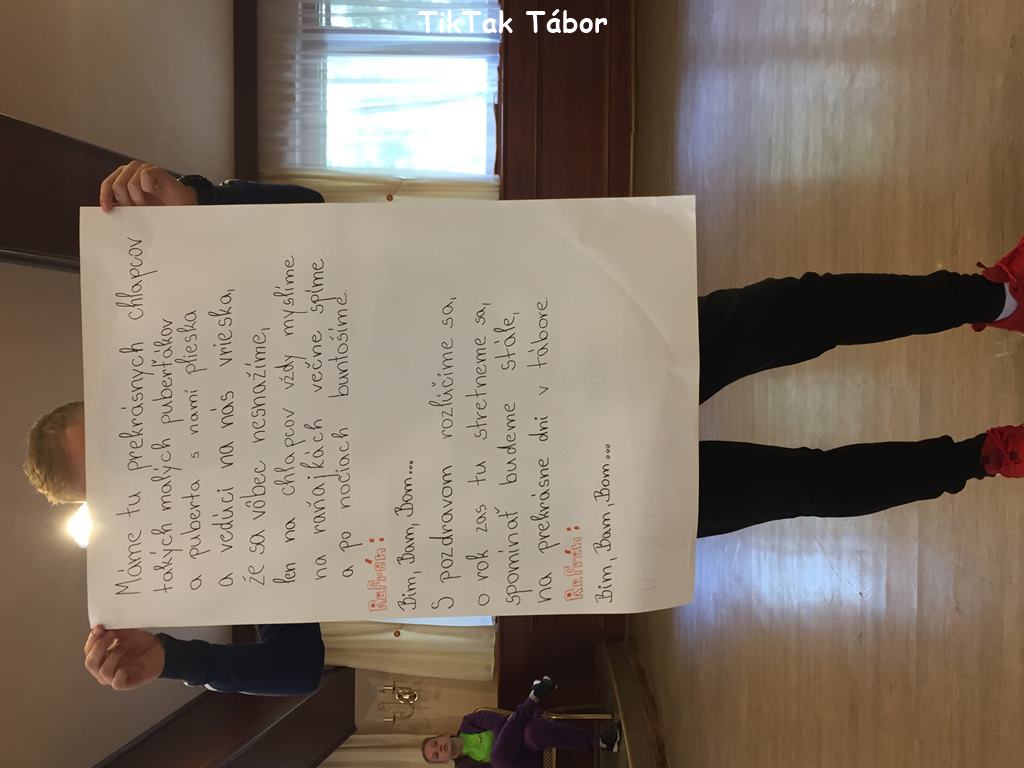 TikTak Tábor
Máme tu prekrásnych chlapcov
takých malých puberťákov
a puberta s nami plieska
a vedúci na nás vrieska,
že sa vôbec nesnažíme,
len na chlapcov vždy myslíme
na raňajkách večne spíme
a po nociach buntošíme.
Refrén:
Bim, Bam, Bom...
S pozdravom rozlúčime sa,
o rok zas tu stretneme sa,
spomínať budeme stále,
na prekrásne dni v tábore.
Refrén:
Bim, Bam, Bom...